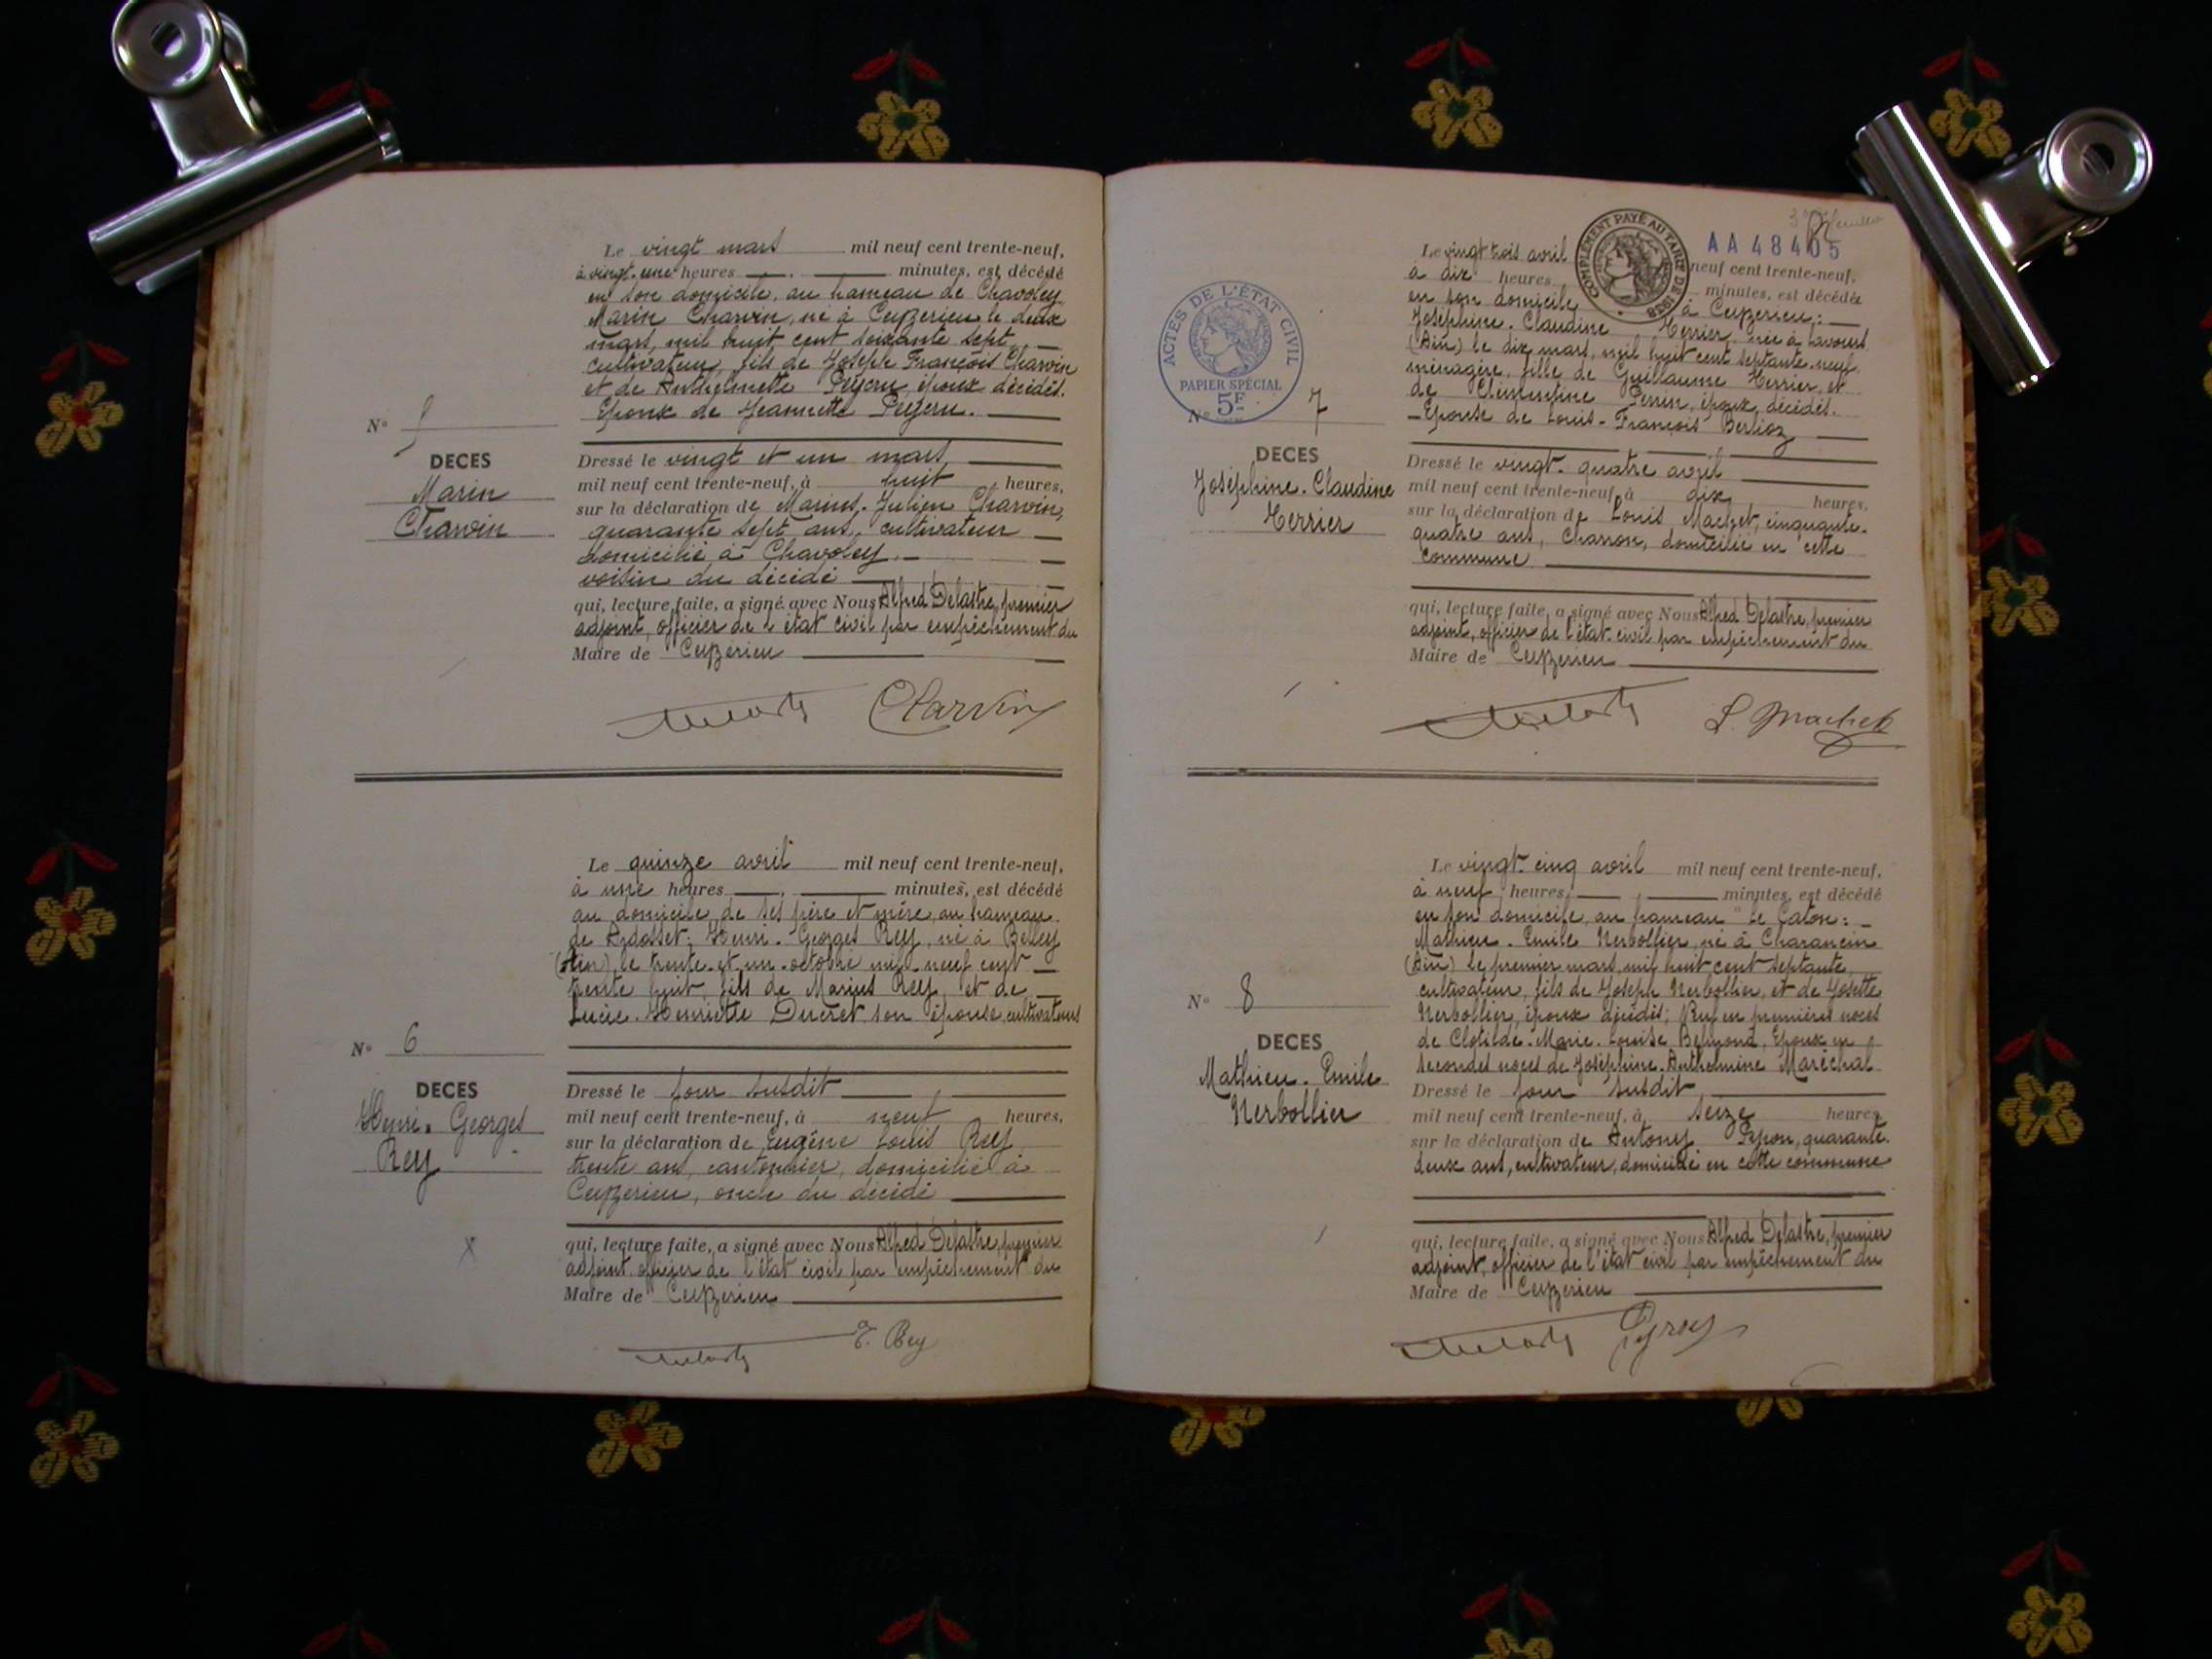 Le vingt mars mil neuf cent trente-neuf,
à vingt-une heures minutes, est décédé
en son domicile, au hameau de Chavoley
Marin Charvin, né à Ceyzerieu le deux
mars, mil huit cent soixante sept
cultivateur, fils de Joseph François Charvin
et de Anthelmette Peysru, époux décédés.
Epoux de Jeannette Peysru.
N° 5
DECES
Marin
Charvin
Dressé le vingt et un mars
mil neuf cent trente-neuf, à huit heures,
sur la déclaration de Marius-Julien Charvin,
quarante sept ans, cultivateur
domicilié à Chavoley.
voisin du décédé
qui, lecture faite, a signé avec Nous Alfred Delastre, premier
adjoint, officier de l'état civil par empêchement du
Maire de Ceyzerieu
Charvin
Le quinze avril mil neuf cent trente-neuf,
à une heures minutes, est décédé
au domicile de ses père et mère, au hameau
de Ardosset: Henri-Georges Rey, né à Belley
(Ain), le trente-et-un-octobre mil-neuf cent
trente huit, fils de Marius Rey, et de
Lucie-Henriette Ducret son épouse, cultivateurs
N° 6
DECES
Henri-Georges
Rey
Dressé le jour susdit
mil neuf cent trente-neuf, à neuf heures,
sur la déclaration de Eugène Louis Rey
trente ans, cantonnier, domicilié à
Ceyzerieu, oncle du décédé
qui, lecture faite, a signé avec Nous Alfred Delastre, premier
adjoint officier de l'état civil par empêchement du
Maire de Ceyzerieu
E. Rey
AA 48405
COMPLÉMENT PAYÉ AU TARIF DE 1938
ACTES DE L'ÉTAT CIVIL
PAPIER SPÉCIAL
5F
Le vingt trois avril neuf cent trente-neuf,
à dix heures minutes, est décédée
en son domicile à Ceyzerieu:
Joséphine-Claudine Terrier, née à Lavours
(Ain) le dix mars, mil huit cent septante-neuf,
ménagère, fille de Guillaume Terrier, et
de Clémentine Perrin, époux, décédés.
Epouse de Louis-François Berlioz
N° 7
DECES
Joséphine-Claudine
Terrier
Dressé le vingt-quatre avril
mil neuf cent trente-neuf, à dix heures,
sur la déclaration de Louis Machet, cinquante-
quatre ans, charron, domicilié en cette
commune
qui, lecture faite, a signé avec Nous Alfred Delastre, premier
adjoint, officier de l'état-civil par empêchement du
Maire de Ceyzerieu
L. Machet
Le vingt-cinq avril mil neuf cent trente-neuf,
à neuf heures, minutes, est décédé
en son domicile, au hameau "le Caton":
Mathieu-Emile Nerbollier, né à Charancin
(Ain) le premier mars, mil huit cent septante,
cultivateur, fils de Joseph Nerbollier, et de Josette
Nerbollier, époux décédés; Veuf en premières noces
de Clotilde-Marie-Louise Belmond, Epoux en
secondes noces de Joséphine-Anthelmine Maréchal
N° 8
DECES
Mathieu-Emile
Nerbollier
Dressé le jour susdit
mil neuf cent trente-neuf, à seize heures,
sur la déclaration de Antony quarante-
deux ans, cultivateur, domicilié en cette commune
qui, lecture faite, a signé avec Nous Alfred Delastre, premier
adjoint, officier de l'état civil par empêchement du
Maire de Ceyzerieu